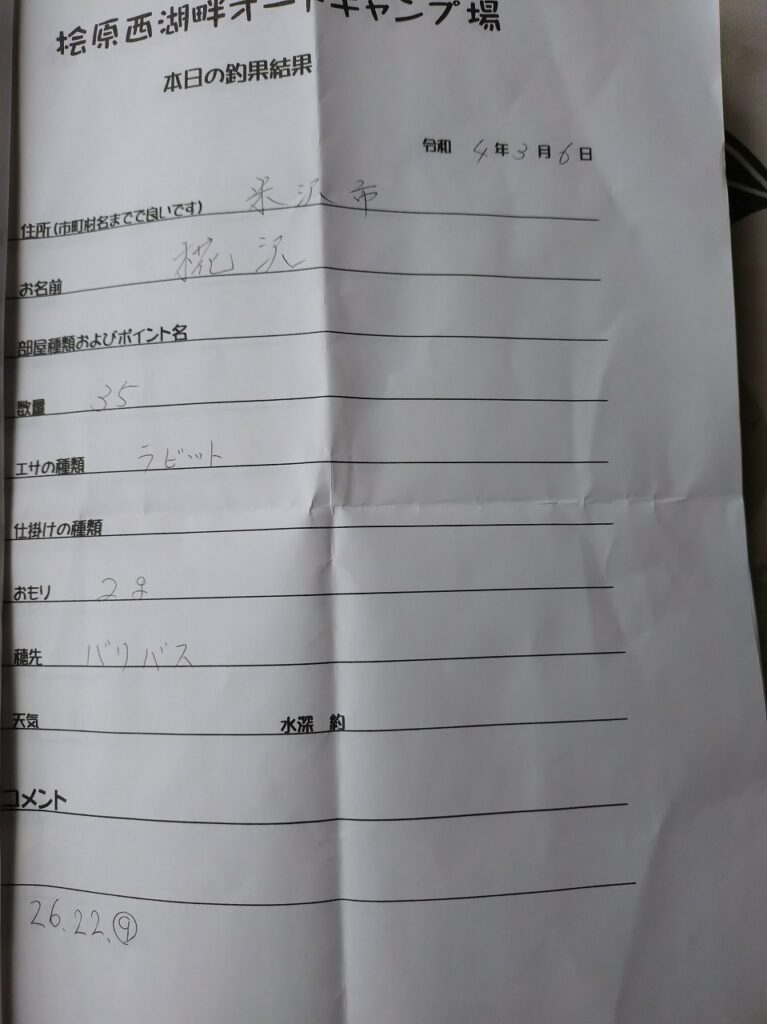 桧原西湖畔オートキャンプ場
本日の釣果結果
令和 4年3月6日
住所(市町村名までで良いです) 米沢市
お名前 椛沢
部屋種類およびポイント名
数量 35
エサの種類 ラビット
仕掛けの種類
おもり 2g
穂先 バリバス
天気 水深 約
コメント
26.22.⑨